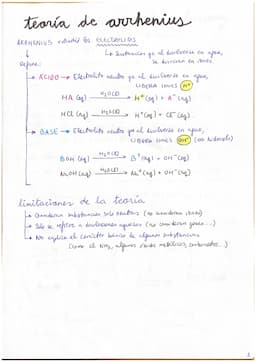 teoría de arrhenius
ARRHENIUS estudió los ELECTROLITOS
↓ ↳ Sustancias que al disolverse en agua,
Define: se disocian en iones.
→ ÁCIDO → Electrolito neutro que al disolverse en agua,
LIBERA IONES H⁺
HA (aq) —H₂O(l)→ H⁺(aq) + A⁻(aq)
HCl (aq) —H₂O(l)→ H⁺(aq) + Cl⁻(aq)
→ BASE → Electrolito neutro que al disolverse en agua,
LIBERA IONES OH⁻ (ion hidroxilo)
BOH (aq) —H₂O(l)→ B⁺(aq) + OH⁻(aq)
NaOH (aq) —H₂O(l)→ Na⁺(aq) + OH⁻(aq)
limitaciones de la teoría
→ Consideran substancias solo neutras (no consideran iones)
→ Sólo se refiere a disoluciones acuosas (no consideran gases...)
→ No explica el carácter básico de algunas substancias
(como el NH₃, algunos óxidos metálicos, carbonatos...)
1